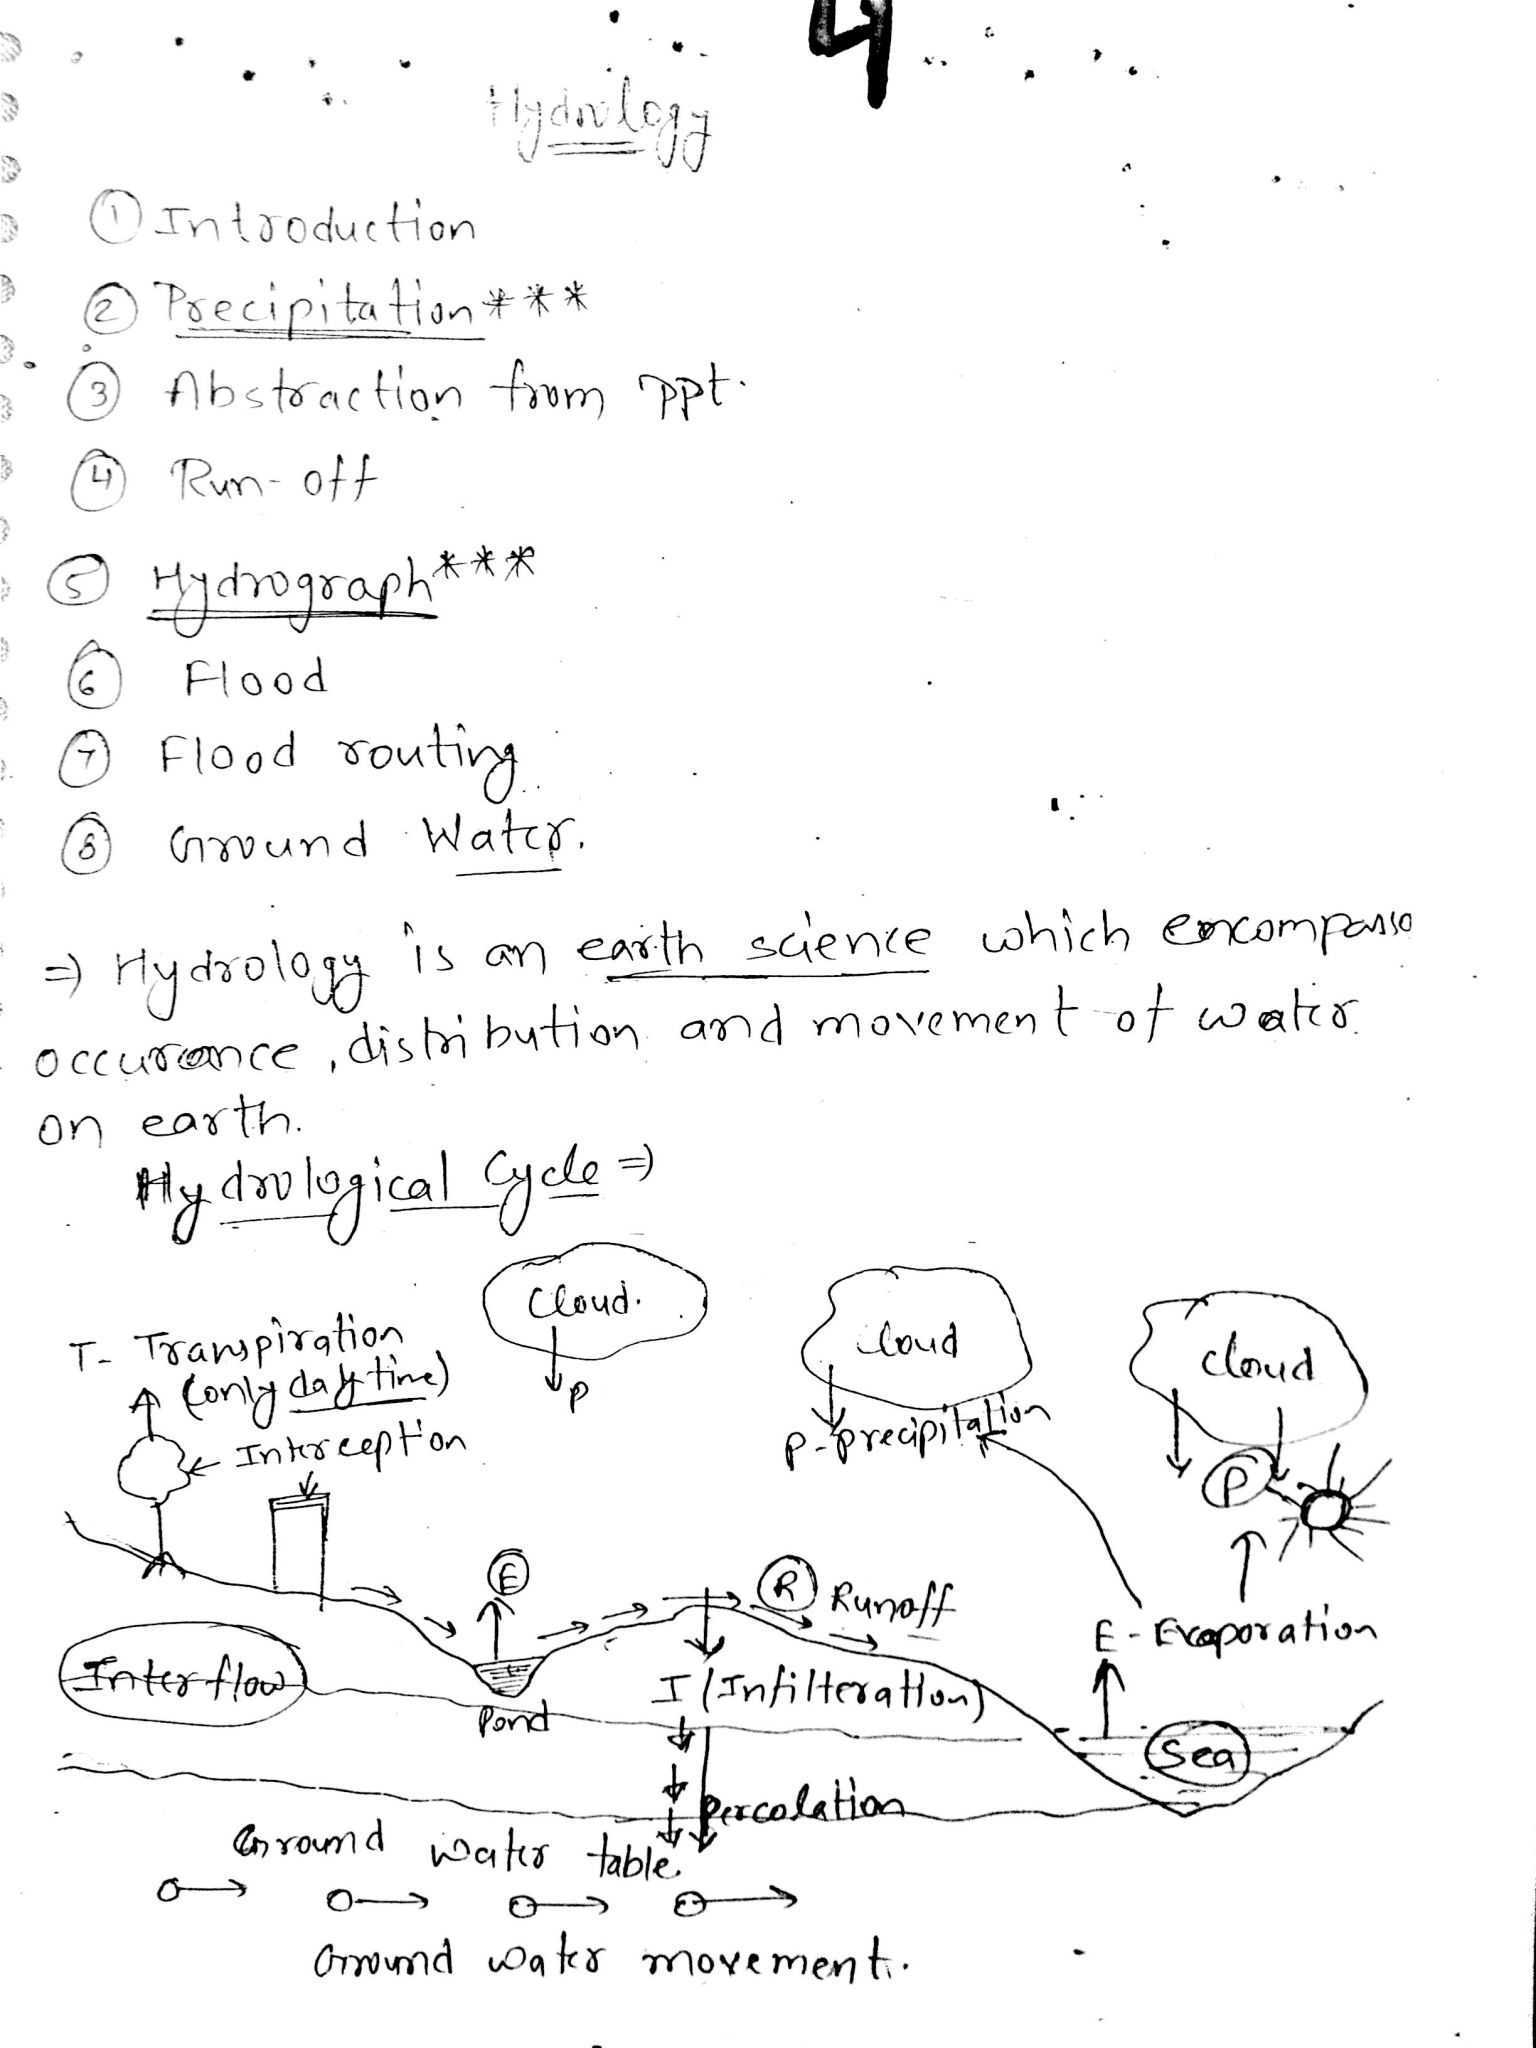 4
Hydrology
① Introduction
② Precipitation ***
③ Abstraction from ppt.
④ Run-off
⑤ Hydrograph ***
⑥ Flood
⑦ Flood routing
⑧ Ground Water.
⇒ Hydrology is an earth science which encompasss
occurance, distribution and movement of water
on earth.
Hydrological Cycle ⇒
Cloud.
P
cloud
P-precipitation
cloud
P
T- Transpiration
(only day time)
Interception
E
R Runoff
E - Evaporation
Interflow
Pond
I (Infilteration)
Sea
Percolation
Ground water table.
Ground water movement.